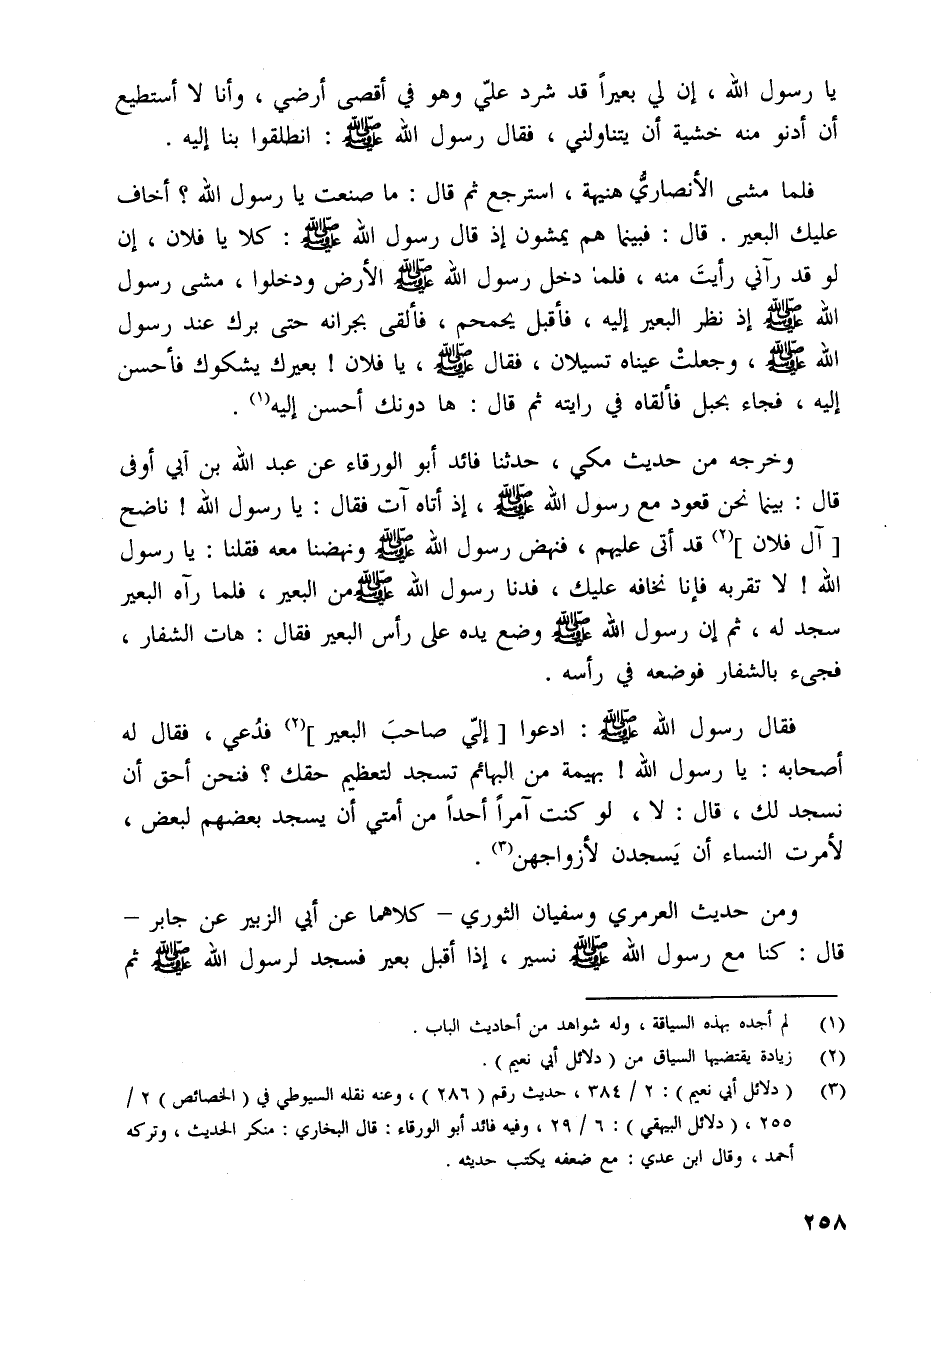 يا رسول الله ، إن لي بعيراً قد شرد عليّ وهو في أقصى أرضي ، وأنا لا أستطيع
أن أدنو منه خشية أن يتناولني ، فقال رسول الله ﷺ : انطلقوا بنا إليه .
فلما مشى الأنصاريُّ هنيهة ، استرجع ثم قال : ما صنعت يا رسول الله ؟ أخاف
عليك البعير . قال : فبينما هم يمشون إذ قال رسول الله ﷺ : كلا يا فلان ، إن
لو قد رآني رأيتَ منه ، فلما دخل رسول الله ﷺ الأرض ودخلوا ، مشى رسول
الله ﷺ إذ نظر البعير إليه ، فأقبل يحمحم ، فألقى بجرانه حتى برك عند رسول
الله ﷺ ، وجعلتْ عيناه تسيلان ، فقال ﷺ ، يا فلان ! بعيرك يشكوك فأحسن
إليه ، فجاء بحبل فألقاه في رايته ثم قال : ها دونك أحسن إليه(١) .
وخرجه من حديث مكي ، حدثنا فائد أبو الورقاء عن عبد الله بن آبي أوفى
قال : بينما نحن قعود مع رسول الله ﷺ ، إذ أتاه آت فقال : يا رسول الله ! ناضح
[ آل فلان ](٢) قد أتى عليهم ، فنهض رسول الله ﷺ ونهضنا معه فقلنا : يا رسول
الله ! لا تقربه فإنا نخافه عليك ، فدنا رسول الله ﷺ من البعير ، فلما رآه البعير
سجد له ، ثم إن رسول الله ﷺ وضع يده على رأس البعير فقال : هات الشفار ،
فجىء بالشفار فوضعه في رأسه .
فقال رسول الله ﷺ : ادعوا [ إليّ صاحبَ البعير ](٢) فدُعي ، فقال له
أصحابه : يا رسول الله ! بهيمة من البهائم تسجد لتعظيم حقك ؟ فنحن أحق أن
نسجد لك ، قال : لا ، لو كنت آمراً أحداً من أمتي أن يسجد بعضهم لبعض ،
لأمرت النساء أن يَسجدن لأزواجهن(٣) .
ومن حديث العرمري وسفيان الثوري – كلاهما عن أبي الزبير عن جابر –
قال : كنا مع رسول الله ﷺ نسير ، إذا أقبل بعير فسجد لرسول الله ﷺ ثم
(١) لم أجده بهذه السياقة ، وله شواهد من أحاديث الباب .
(٢) زيادة يقتضيها السياق من ( دلائل أبي نعيم ) .
(٣) ( دلائل أبي نعيم ) : ٢ / ٣٨٤ ، حديث رقم ( ٢٨٦ ) ، وعنه نقله السيوطي في ( الخصائص ) ٢ /
٢٥٥ ، ( دلائل البيهقي ) : ٦ / ٢٩ ، وفيه فائد أبو الورقاء : قال البخاري : منكر الحديث ، وتركه
أحمد ، وقال ابن عدي : مع ضعفه يكتب حديثه .
٢٥٨